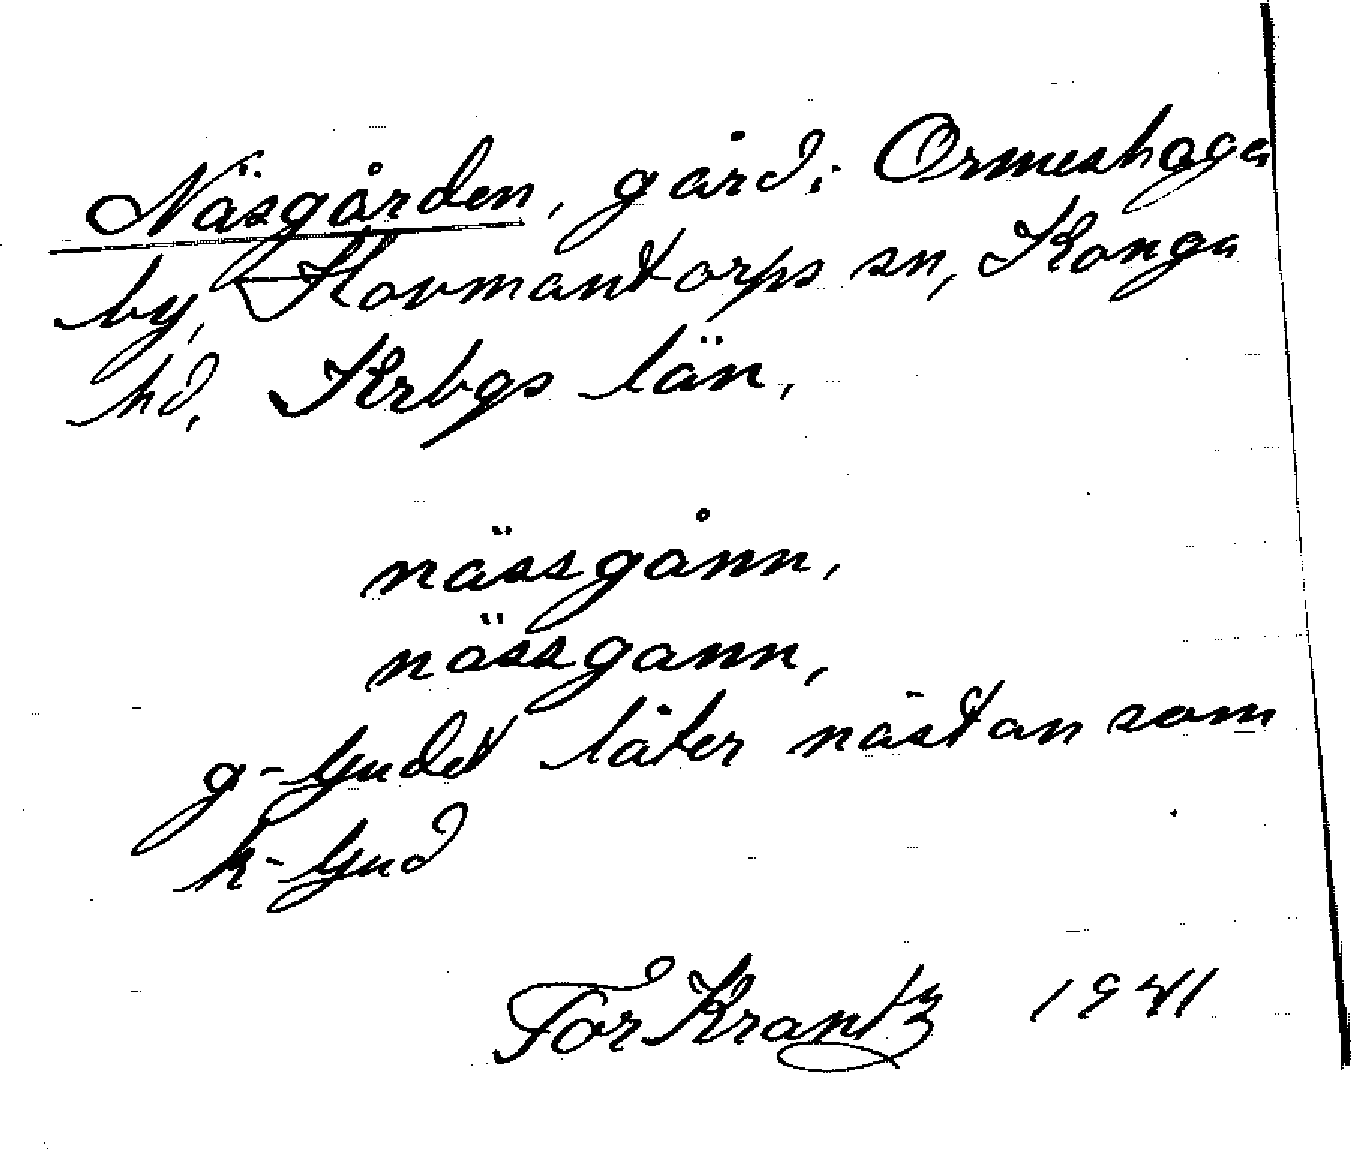 Näsgården, gård i Ormeshaga
by, Hovmantorps sn, Konga
hd. Krbgs län,
nässgånn,
nässgann,
g-ljudet låter nästan som
k-ljud
Tor Krantz 1941